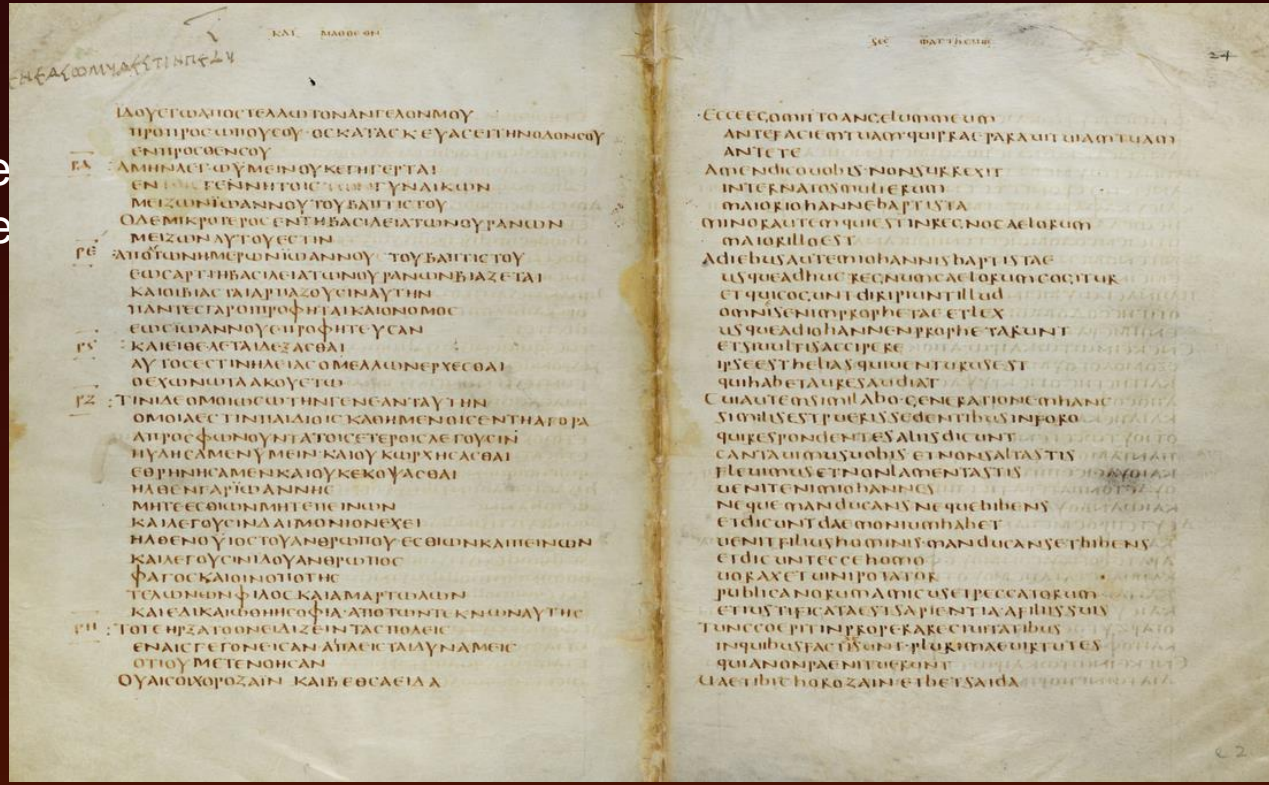 e
e
ΚΑΤ ΜΑΘΘΕΟΝ
ΙΔΟΥΕΓΩΑΠΟΣΤΕΛΛΩΤΟΝΑΝΓΕΛΟΝΜΟΥ
ΠΡΟΠΡΟΣΩΠΟΥΣΟΥ·ΟΣΚΑΤΑΣΚΕΥΑΣΕΙΤΗΝΟΔΟΝΣΟΥ
ΕΝΠΡΟΣΘΕΝΣΟΥ
ΡΔ ΑΜΗΝΛΕΓΩΫΜΕΙΝΟΥΚΕΓΗΓΕΡΤΑΙ
ΕΝ ΓΕΝΝΗΤΟΙΣ ΓΥΝΑΙΚΩΝ
ΜΕΙΖΩΝΪΩΑΝΝΟΥΤΟΥΒΑΠΤΙΣΤΟΥ
ΟΔΕΜΙΚΡΟΤΕΡΟΣΕΝΤΗΒΑΣΙΛΕΙΑΤΩΝΟΥΡΑΝΩΝ
ΜΕΙΖΩΝΑΥΤΟΥΕΣΤΙΝ
ΡΕ ΑΠΟΤΩΝΗΜΕΡΩΝΪΩΑΝΝΟΥ ΤΟΥΒΑΠΤΙΣΤΟΥ
ΕΩΣΑΡΤΙΗΒΑΣΙΛΕΙΑΤΩΝΟΥΡΑΝΩΝΒΙΑΖΕΤΑΙ
ΚΑΙΟΙΒΙΑΣΤΑΙΑΡΠΑΖΟΥΣΙΝΑΥΤΗΝ
ΠΑΝΤΕΣΓΑΡΟΙΠΡΟΦΗΤΑΙΚΑΙΟΝΟΜΟΣ
ΕΩΣΪΩΑΝΝΟΥΕΠΡΟΦΗΤΕΥΣΑΝ
ΡϚ ΚΑΙΕΙΘΕΛΕΤΑΙΔΕΞΑΣΘΑΙ
ΑΥΤΟΣΕΣΤΙΝΗΛΕΙΑΣΟΜΕΛΛΩΝΕΡΧΕΣΘΑΙ
ΟΕΧΩΝΩΤΑΑΚΟΥΕΤΩ
ΡΖ ΤΙΝΙΔΕΟΜΟΙΩΣΩΤΗΝΓΕΝΕΑΝΤΑΥΤΗΝ
ΟΜΟΙΑΕΣΤΙΝΠΑΙΔΙΟΙΣΚΑΘΗΜΕΝΟΙΣΕΝΤΗΑΓΟΡΑ
ΑΠΡΟΣΦΩΝΟΥΝΤΑΤΟΙΣΕΤΕΡΟΙΣΛΕΓΟΥΣΙΝ
ΗΥΛΗΣΑΜΕΝΥΜΕΙΝ·ΚΑΙΟΥΚΩΡΧΗΣΑΣΘΑΙ
ΕΘΡΗΝΗΣΑΜΕΝΚΑΙΟΥΚΕΚΟΨΑΣΘΑΙ
ΗΛΘΕΝΓΑΡΪΩΑΝΝΗΣ
ΜΗΤΕΕΣΘΙΩΝΜΗΤΕΠΕΙΝΩΝ
ΚΑΙΛΕΓΟΥΣΙΝΔΑΙΜΟΝΙΟΝΕΧΕΙ
ΗΛΘΕΝΟΥΙΟΣΤΟΥΑΝΘΡΩΠΟΥΕΣΘΙΩΝΚΑΙΠΕΙΝΩΝ
ΚΑΙΛΕΓΟΥΣΙΝΙΔΟΥΑΝΘΡΩΠΟΣ
ΦΑΓΟΣΚΑΙΟΙΝΟΠΟΤΗΣ
ΤΕΛΩΝΩΝΦΙΛΟΣΚΑΙΑΜΑΡΤΩΛΩΝ
ΚΑΙΕΔΙΚΑΙΩΘΗΗΣΟΦΙΑ·ΑΠΟΤΩΝΤΕΚΝΩΝΑΥΤΗΣ
ΡΗ ΤΟΤΕΗΡΞΑΤΟΟΝΕΙΔΙΖΕΙΝΤΑΣΠΟΛΕΙΣ
ΕΝΑΙΣΓΕΓΟΝΕΙΣΑΝΑΙΠΛΕΙΣΤΑΙΔΥΝΑΜΕΙΣ
ΟΤΙΟΥΜΕΤΕΝΟΗΣΑΝ
ΟΥΑΙΣΟΙΧΟΡΟΖΑΙΝ ΚΑΙΒΕΘΣΑΕΙΔΑ
SEC MATTHEUM
24
ECCEEGOMITTOANGELUMMEUM
ANTEFACIEMTUAMQUIPRAEPARAUITUIAMTUAM
ANTETE
AMENDICOUOBIS·NONSURREXIT
INTERNATOSMULIERUM
MAIORIOHANNEBAPTISTA
MINORAUTEMQUIESTINREGNOCAELORUM
MAIORILLOEST
ADIEBUSAUTEMIOHANNISBAPTISTAE
USQUEADHUCREGNUMCAELORUMCOGITUR
ETQUICOGUNTDIRIPIUNTILLUD
OMNISENIMPROPHETAEETLEX
USQUEADIOHANNENPROPHETARUNT
ETSIUULTISACCIPERE
IPSEESTHELIASQUIUENTURUSEST
QUIHABETAURESAUDIAT
CUIAUTEMSIMILABO·GENERATIONEMHANC
SIMILISESTPUERISSEDENTIBUSINFORO
QUIRESPONDENTESALIISDICUNT
CANTAUIMUSUOBIS ETNONSALTASTIS
FLEUIMUSETNONLAMENTASTIS
UENITENIMIOHANNES
NEQUEMANDUCANSNEQUEBIBENS
ETDICUNTDAEMONIUMHABET
UENITFILIUSHOMINIS·MANDUCANSETBIBENS
ETDICUNTECCEHOMO
UORAXETUINIPOTATOR
PUBLICANORUMAMICUSETPECCATORUM
ETIUSTIFICATAESTSAPIENTIA·AFILIISSUIS
TUNCCOEPITINPROPERARECIUITATIBUS
INQUIBUSFACTISUNT·PLURIMAEUIRTUTES
QUIANONPAENITUERUNT
UAETIBICHOROZAIN·ETBETSAIDA
e 2